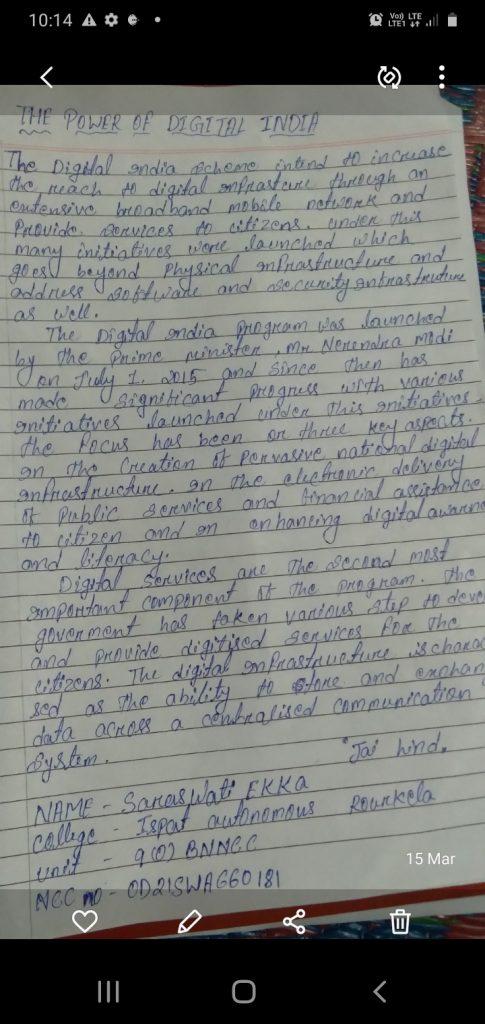 10:14
Vo)) LTE
LTE1
THE POWER OF DIGITAL INDIA
The Digital india scheme intend to increase
the reach to digital infrasture through an
extensive broadband mobile network and
Provide. services to citizens. under this
many initiatives were launched which
goes beyond Physical infrastructure and
address software and security infrastruture
as well.
The Digital india program was launched
by the Prime minister, Mr Nerendra modi
on July 1, 2015 and since then has
made significant progress with various
initiatives launched under this initiatives.
the focus has been on three key aspects.
in the creation of pervasive national digital
infrastructure. in the electronic delivery
of Public services and financial assistance
to citizen and in enhancing digital awarne
and literacy.
Digital services are the second most
important component of the program. the
goverment has taken various step to deve
and provide digitised services for the
citizens. The digital infrastructure is charac
sed as the ability to store and exchan
data across a centralised communication
system.
Jai hind.
NAME - Saraswati EKKA
college - Ispat autonomous Rourkela
unit - 9(O) BNNCC
NCC no - OD21SWA660181
15 Mar